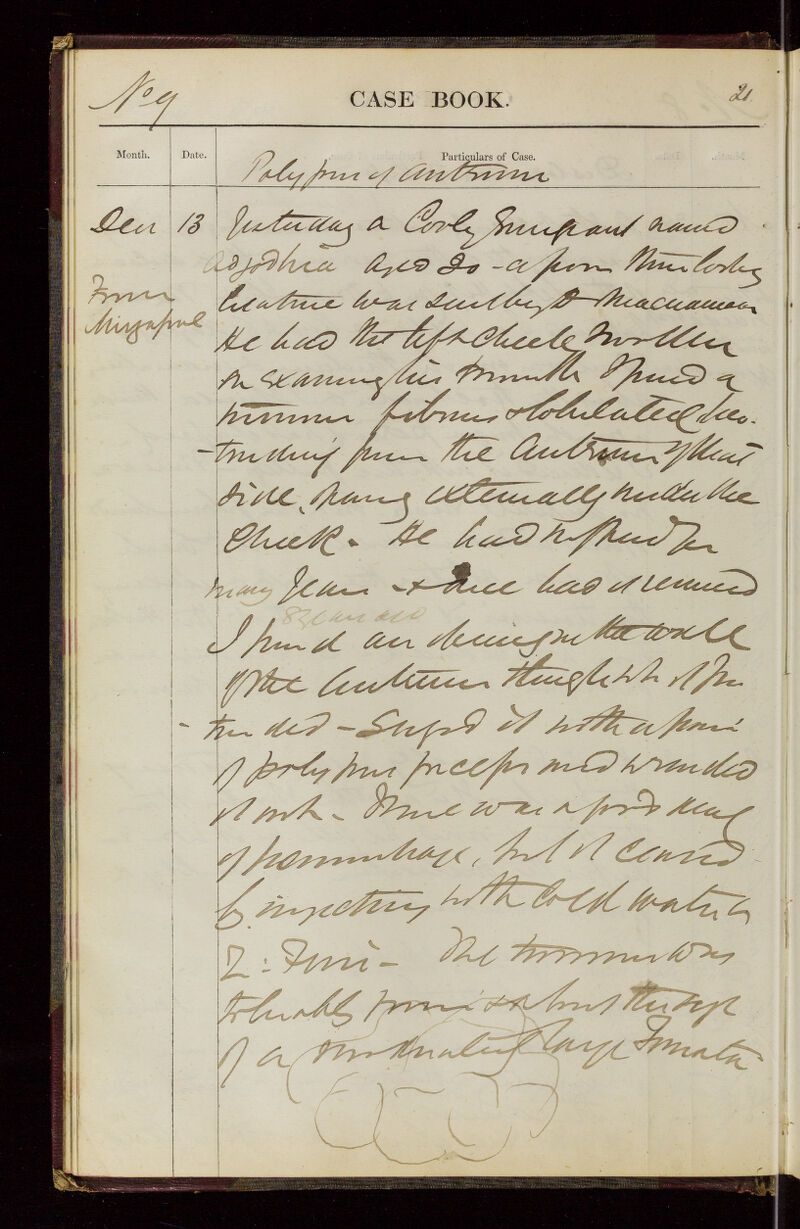 No 9
CASE BOOK.
21
Month. Date. Particulars of Case.
Polypus of Antrum
Decr 13 Yesterday a Cooly Emigrant named
Adjodhia aged 30 - a poor thin looking
From
Mirzapore
creature was sent by Dr Macnamara
He had the left cheek swollen
on examining his mouth I found a
tumour fibrous & lobulated pro-
-truding from the Antrum of that
side, externally under the
Cheek. He had suffered for
many years & once had it removed
8 years ago
I found an opening in the wall
of the Antrum through wh it pro
truded - Seized it with a pair
of polypus forceps and
it out - There was a good deal
of hemorrhage, but it ceased
by injecting with cold water &
T: Ferri - The tumour was
tolerably firm & about the size
of a moderately large Tomata